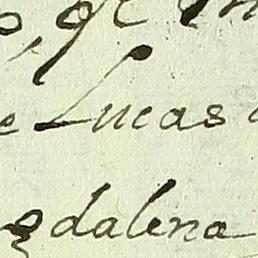 e Lucas
gdalena